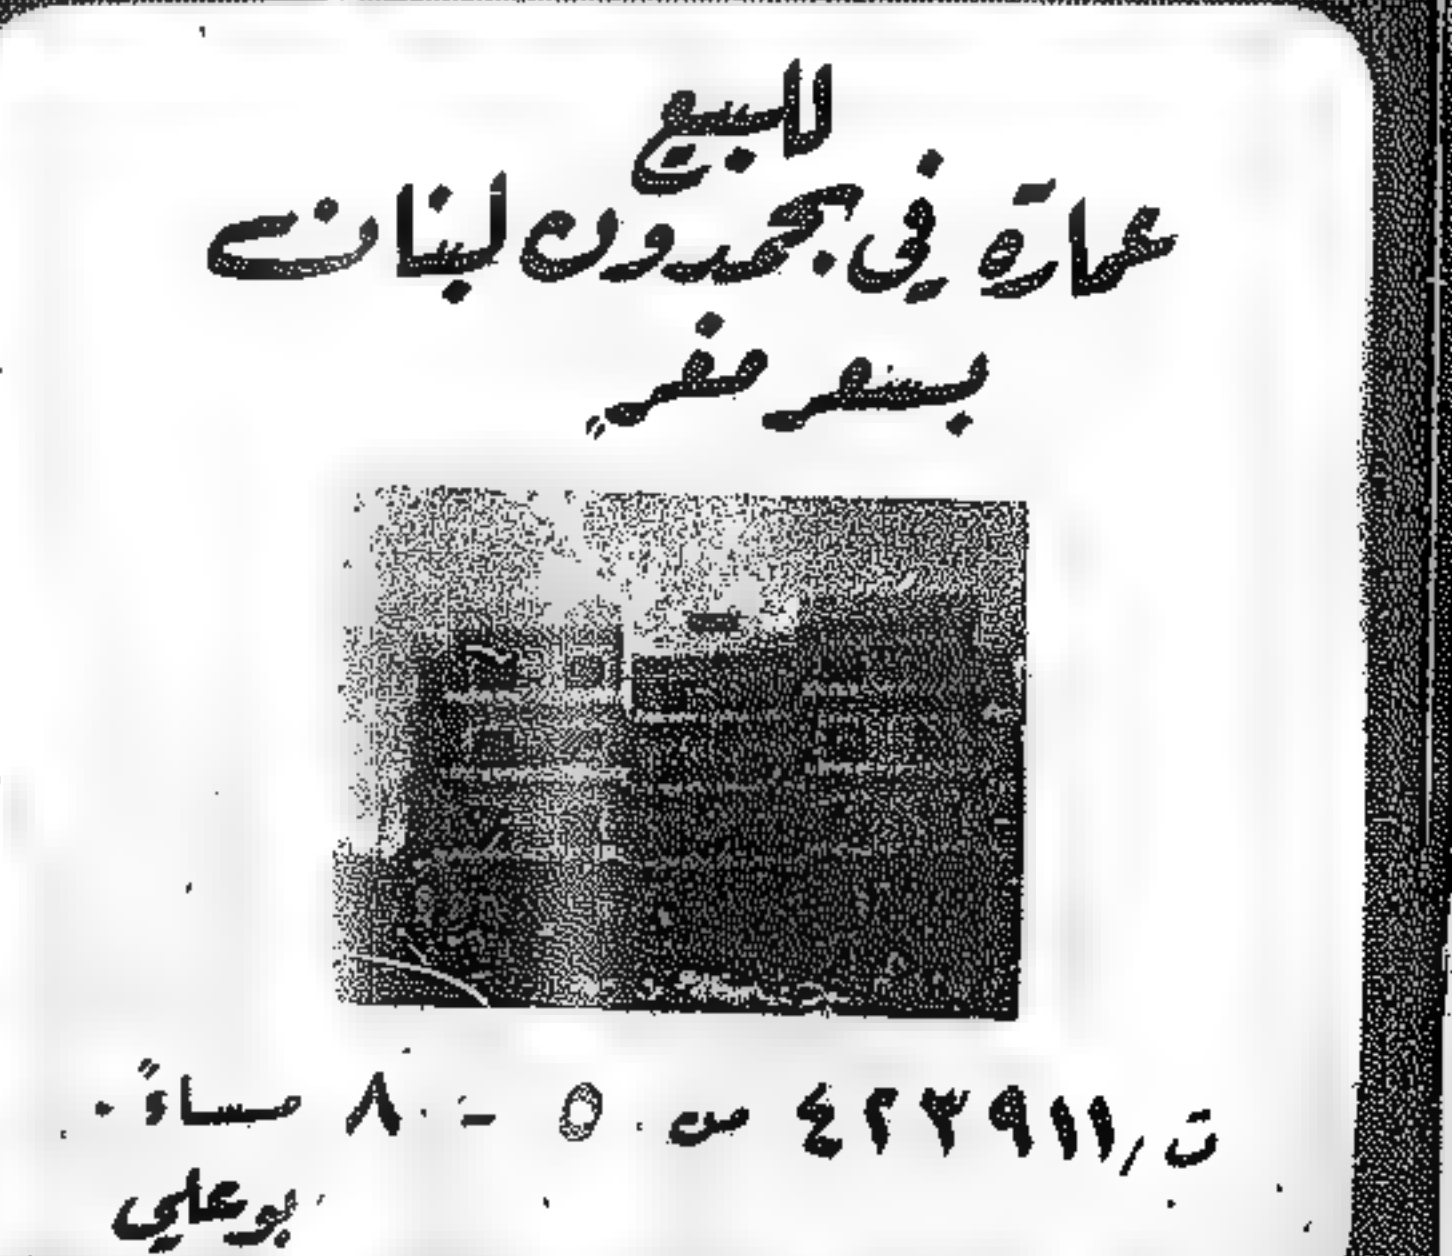 للبيع
عمارة في بحمدون لبنان
بسعر مغرٍ
ت/ ٤٢٣٩١١ س ٥ - ٨ مساءً .
بوعلي